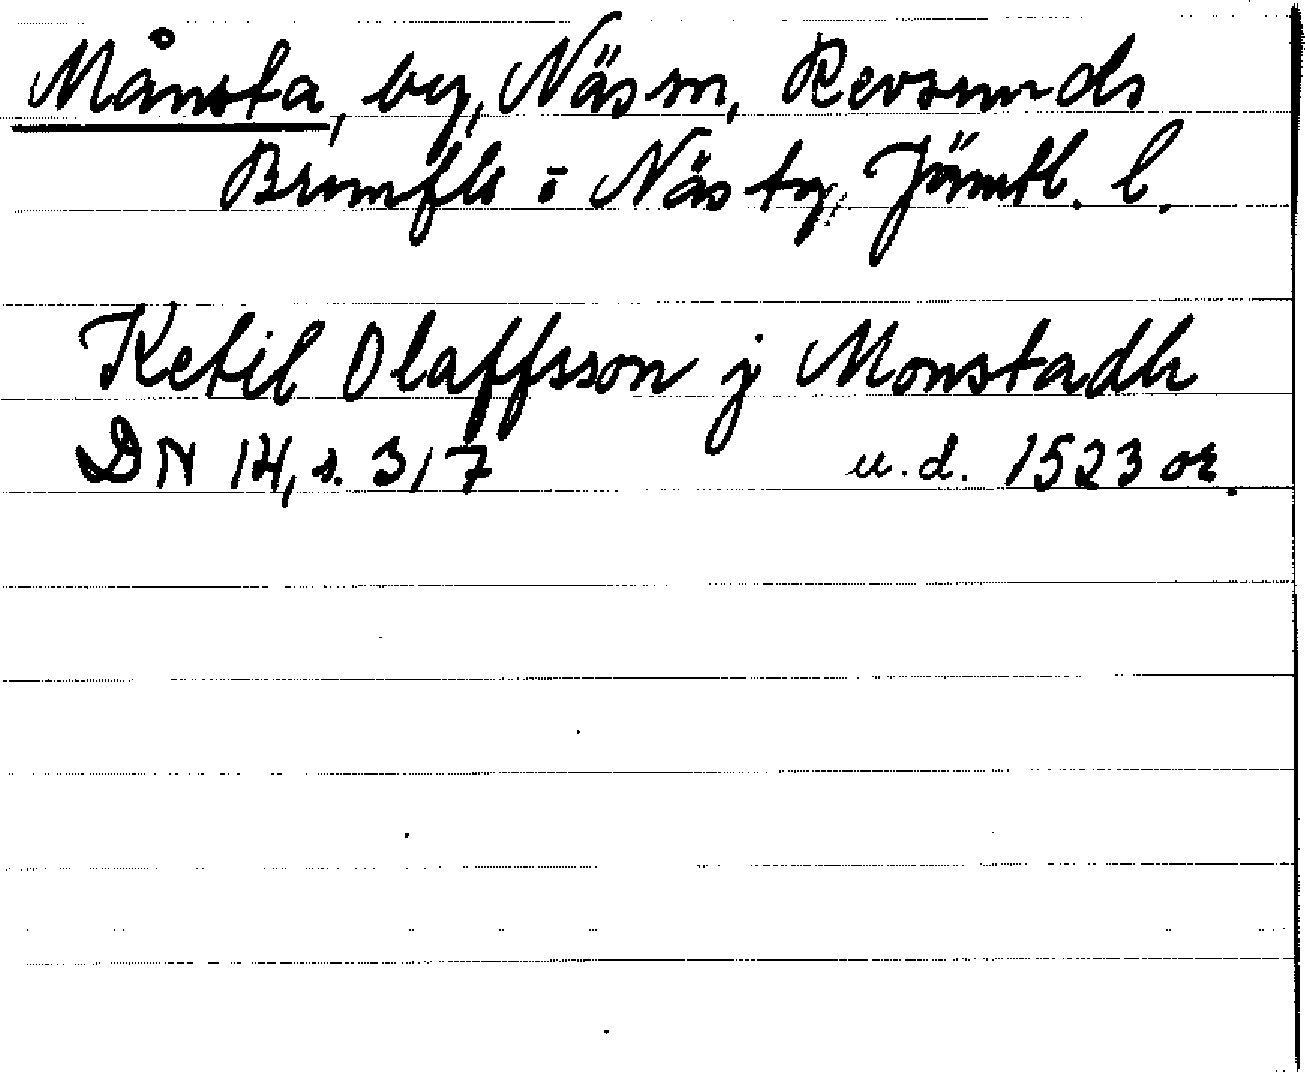 Månsta, by, Näs sn, Revsunds
Brunflo o Näs tg, Jämtl. l.
Ketil Olaffsson j Monstadh
DN 14, s. 317 u.d. 1523 or.